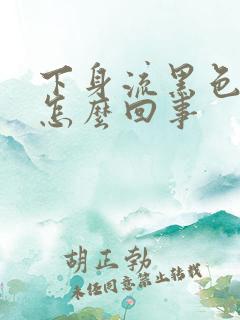 下身流黑色
怎麼回事
胡正勃
未经同意禁止转载